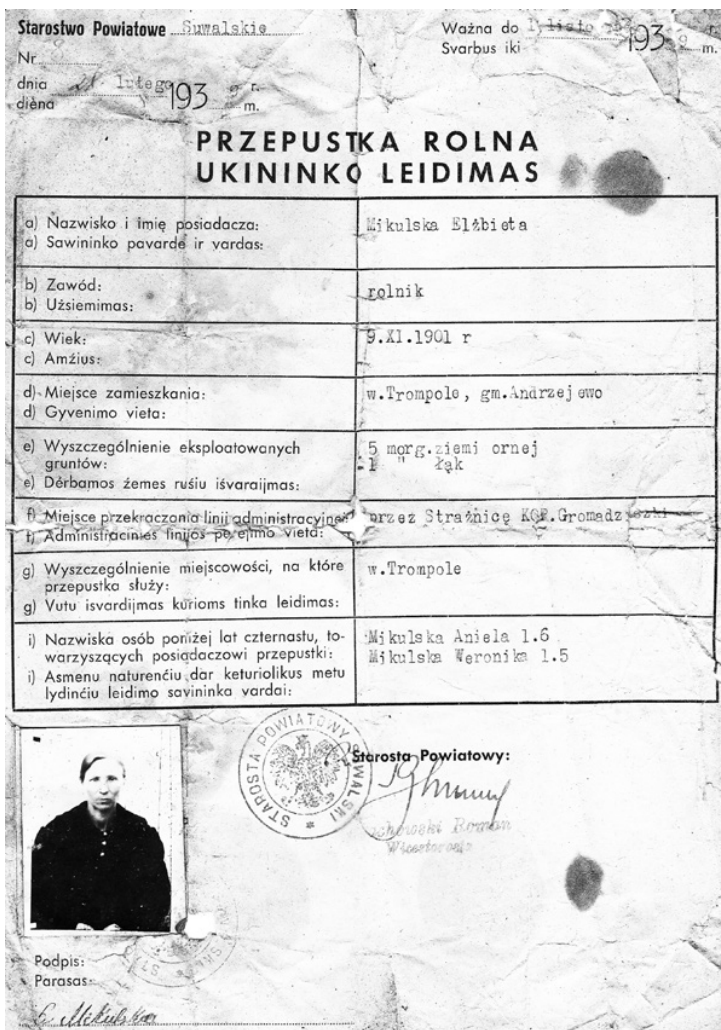 Starostwo Powiatowe Suwalskie
Ważna do 1 listo
Svarbus iki 193 9 r. m.
Nr.
dnia 28 lutego 193 9 r.
diena m.
PRZEPUSTKA ROLNA
UKININKO LEIDIMAS
a) Nazwisko i imię posiadacza:
a) Sawininko pavarde ir vardas:
Mikulska Elżbieta
b) Zawód:
b) Użsiemimas:
rolnik
c) Wiek:
c) Amźius:
9.XI.1901 r
d) Miejsce zamieszkania:
d) Gyvenimo vieta:
w.Trompole, gm.Andrzejewo
e) Wyszczególnienie eksploatowanych
gruntów:
e) Dėrbamos źemes rušiu iśvaraijmas:
5 morg.ziemi ornej
1 " łąk
f) Miejsce przekraczania linji administracyjnej
f) Administracinies linijos perejimo vieta:
przez Strażnicę KOP.Gromadziszki
g) Wyszczególnienie miejscowości, na które
przepustka służy:
g) Vutu isvardijmas kurioms tinka leidimas:
w.Trompole
i) Nazwiska osób poniżej lat czternastu, to-
warzyszących posiadaczowi przepustki:
i) Asmenu naturenćiu dar keturiolikus metu
lydinćiu leidimo savininka vardai:
Mikulska Aniela l.6
Mikulska Weronika l.5
STAROSTA POWIATOWY SUWALSKI
Starosta Powiatowy:
Roman
Wicestarosta
Podpis:
Parasas:
E Mikulska